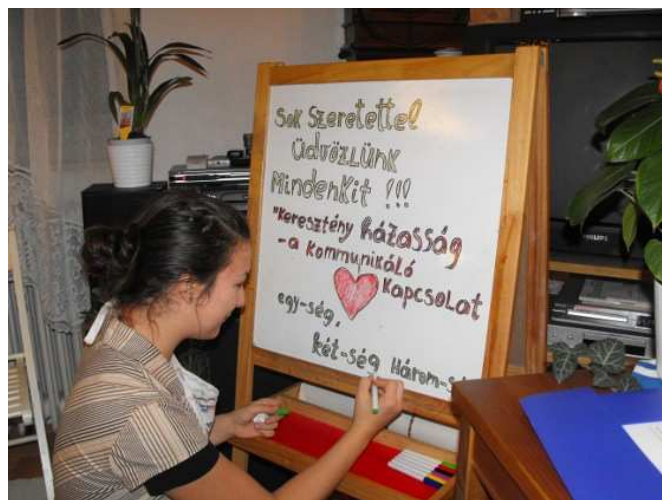 Sok Szeretettel
üdvözlünk
mindenkit !!!
"Keresztény házasság
- a kommunikáló
kapcsolat
egy-ség,
két-ség Három-s
PHILIPS